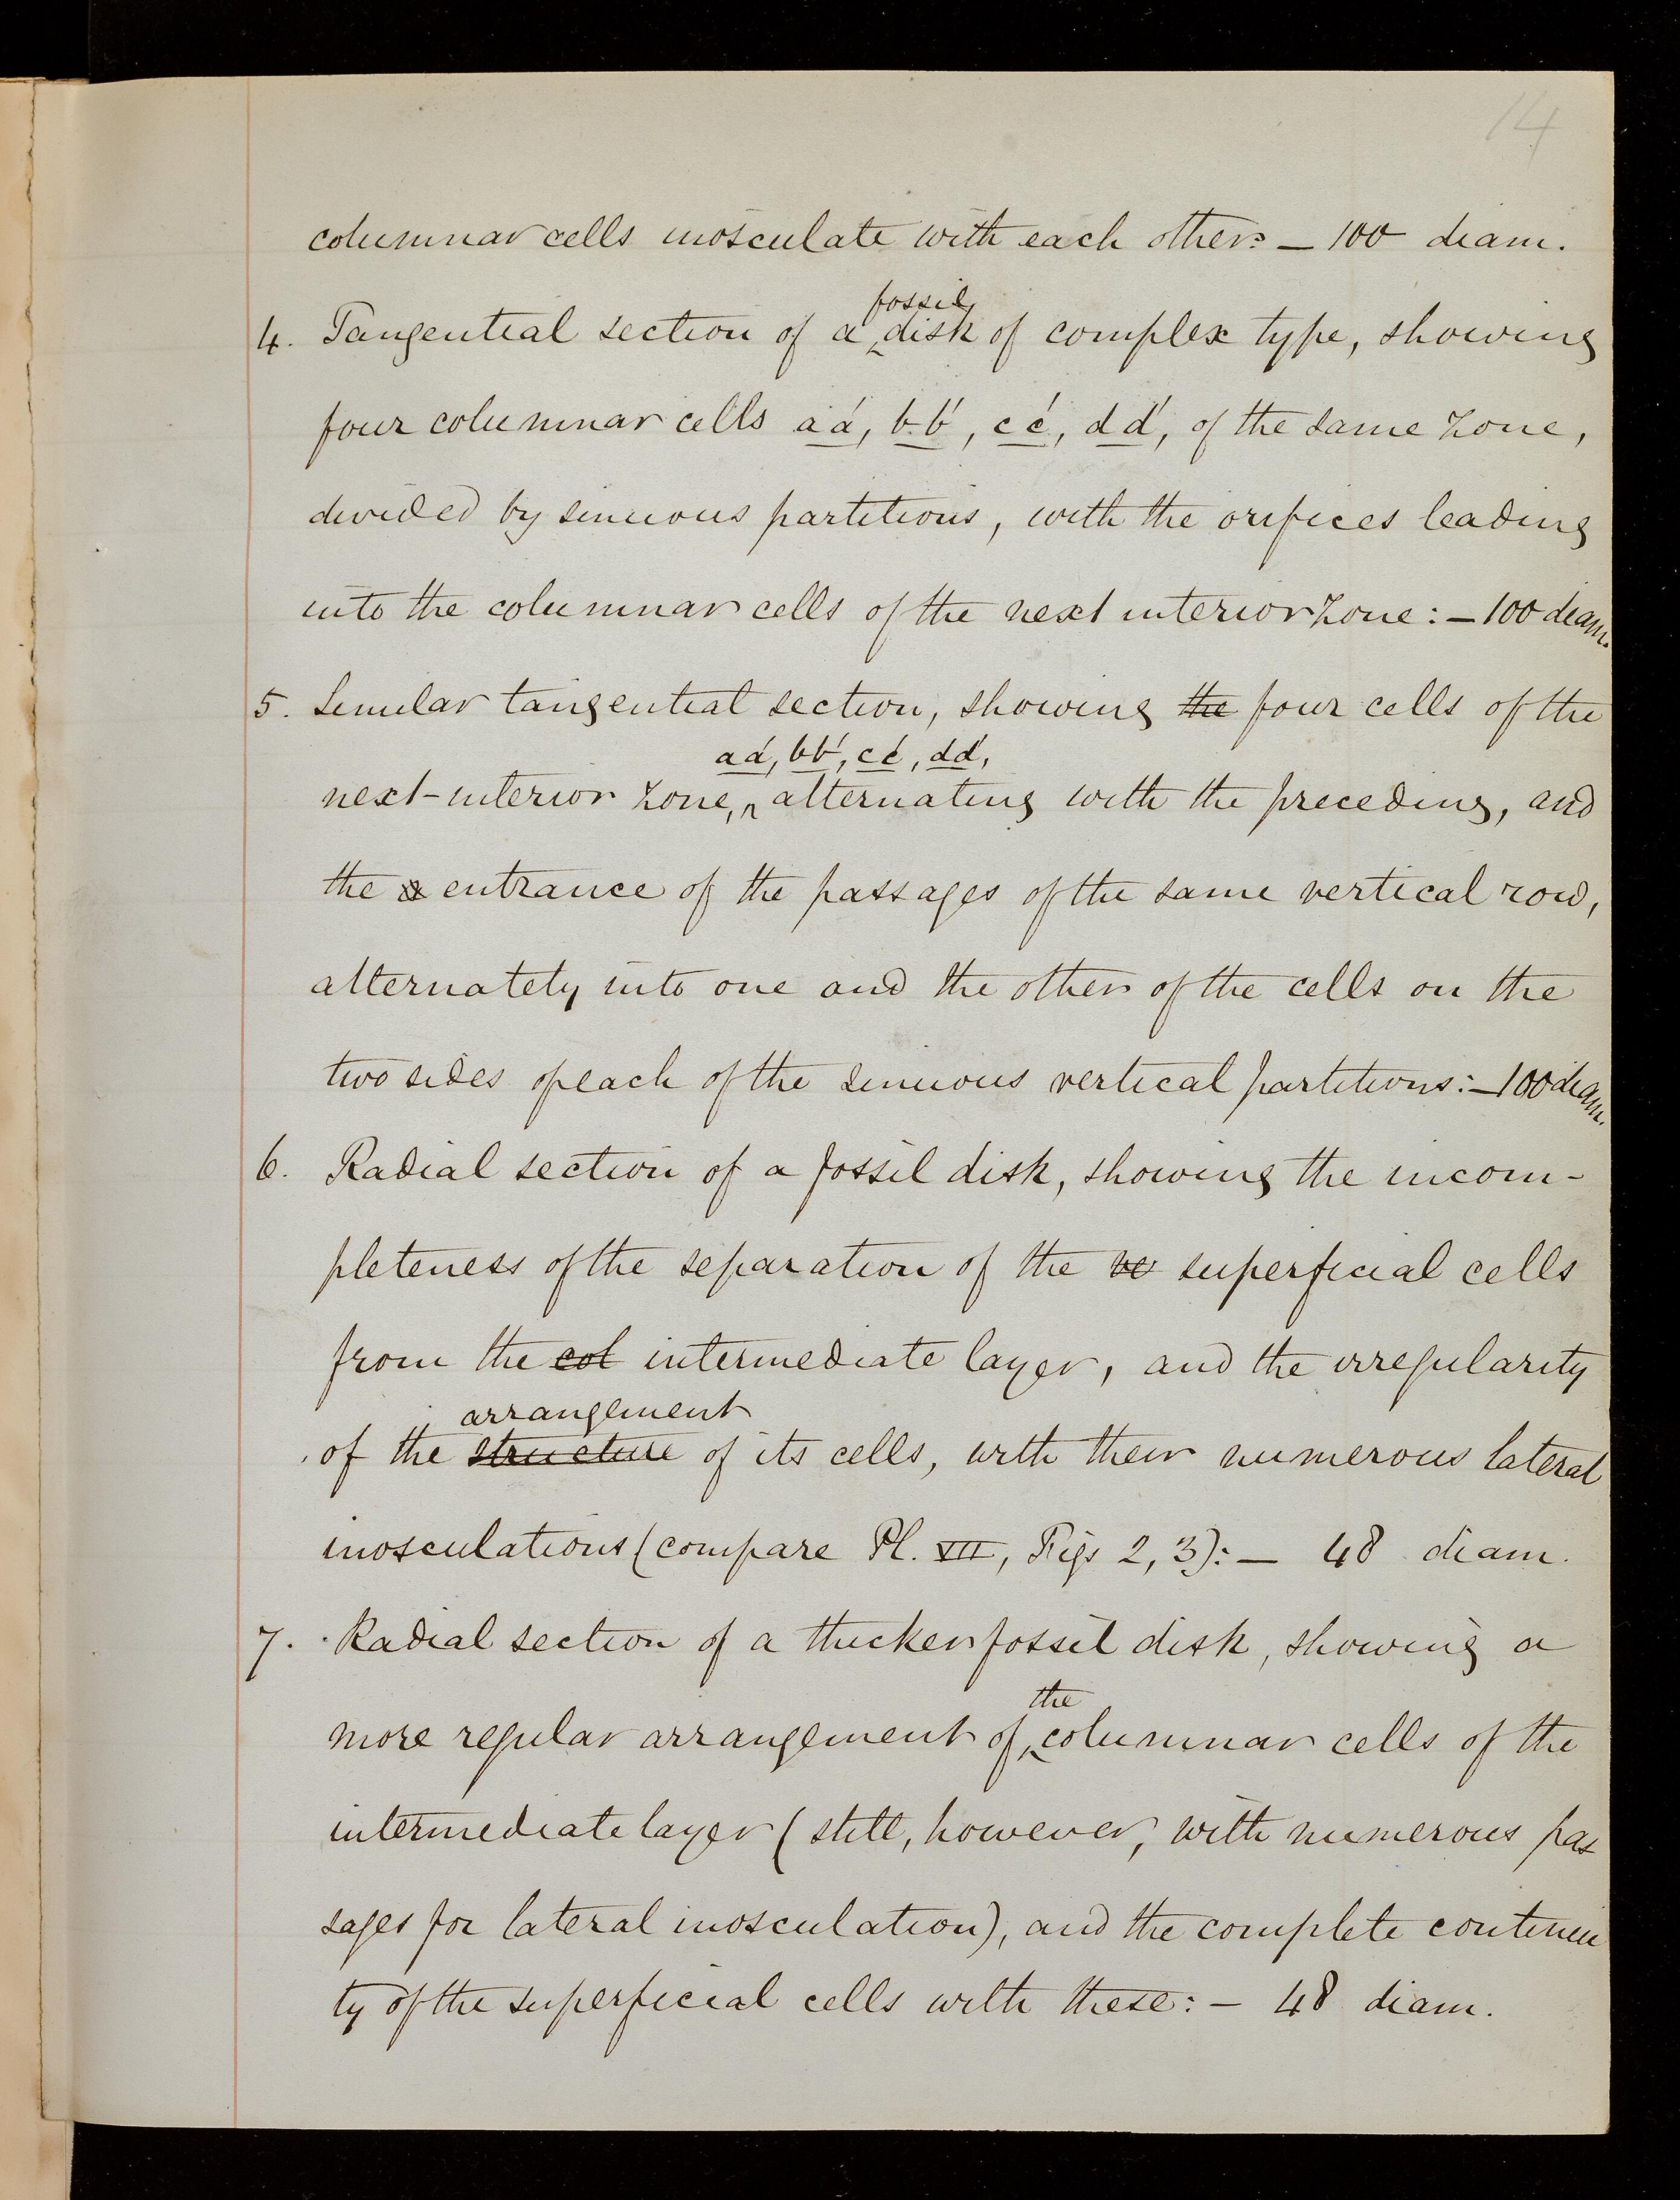 14
columnar cells inosculate with each other: — 100 diam.
fossil
4. Tangential section of a disk of complex type, showing
four columnar cells a a', b b', c c', d d', of the same zone,
divided by sinuous partitions, with the orifices leading
into the columnar cells of the next interior zone: — 100 diam.
5. Similar tangential section, showing the four cells of the
a a', b b', c c', d d',
next-interior zone, alternating with the preceding, and
the entrance of the passages of the same vertical row,
alternately into one and the other of the cells on the
two sides of each of the sinuous vertical partitions: — 100 diam.
6. Radial section of a fossil disk, showing the incom-
pleteness of the separation of the superficial cells
from the col intermediate layer, and the irregularity
arrangement
of the structure of its cells, with their numerous lateral
inosculations (compare Pl. VII, Figs 2, 3): — 48 diam.
7. Radial section of a thicker fossil disk, showing a
the
more regular arrangement of columnar cells of the
intermediate layer (still, however, with numerous pas
sages for lateral inosculation), and the complete continui
ty of the superficial cells with these: — 48 diam.